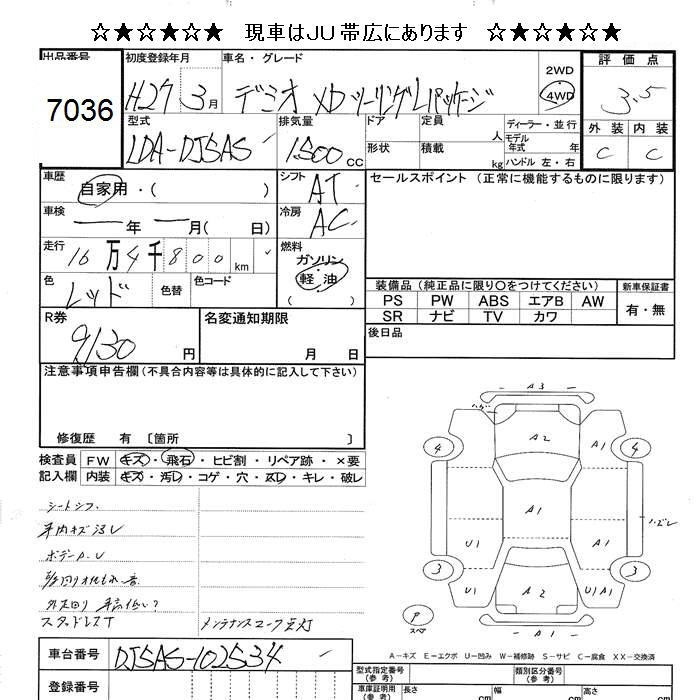 ☆★☆★☆★☆ 現車はJU帯広にあります ☆★☆★☆★☆
出品番号
7036
初度登録年月
H27 3月
車名・グレード
デミオ XDツーリングLパッケージ
2WD
4WD
評価点
3.5
外装 内装
C C
型式
LDA-DJ5AS
排気量
1500 CC
ドア
形状
定員
人
積載
kg
ディーラー・並行
モデル年式 年
ハンドル 左・右
車歴
自家用・( )
シフト
AT
車検
年 月( 日)
冷房
AC
走行
16万4千800km
燃料
ガソリン
軽・油
( )
色
レッド
色替
色コード
セールスポイント (正常に機能するものに限ります)
装備品 (純正品に限り○をつけてください)
新車保証書
PS PW ABS エアB AW
SR ナビ TV カワ
有・無
後日品
R券
9130円
名変通知期限
月 日
注意事項申告欄 (不具合内容等は具体的に記入して下さい)
修復歴 有 〔箇所 〕
検査員記入欄
FW キズ・飛石・ヒビ割・リペア跡・×要
内装 キズ・汚レ・コゲ・穴・スレ・キレ・破レ
シートシワ
車内キズ汚レ
スタッドレスT
メンテナンスコーク点灯
A3
ハゲ
A2
A1
4
4
A1
ハズレ
U1
A1
3
3
U1
A2
U1A1
P
スペア
A-キズ E-エクボ U-凹み W-補修跡 S-サビ C-腐食 XX-交換済
車台番号
DJ5AS-102534
登録番号
型式指定番号
類別区分番号
車庫証明用
(参考)
長さ
cm
幅
cm
高さ
cm